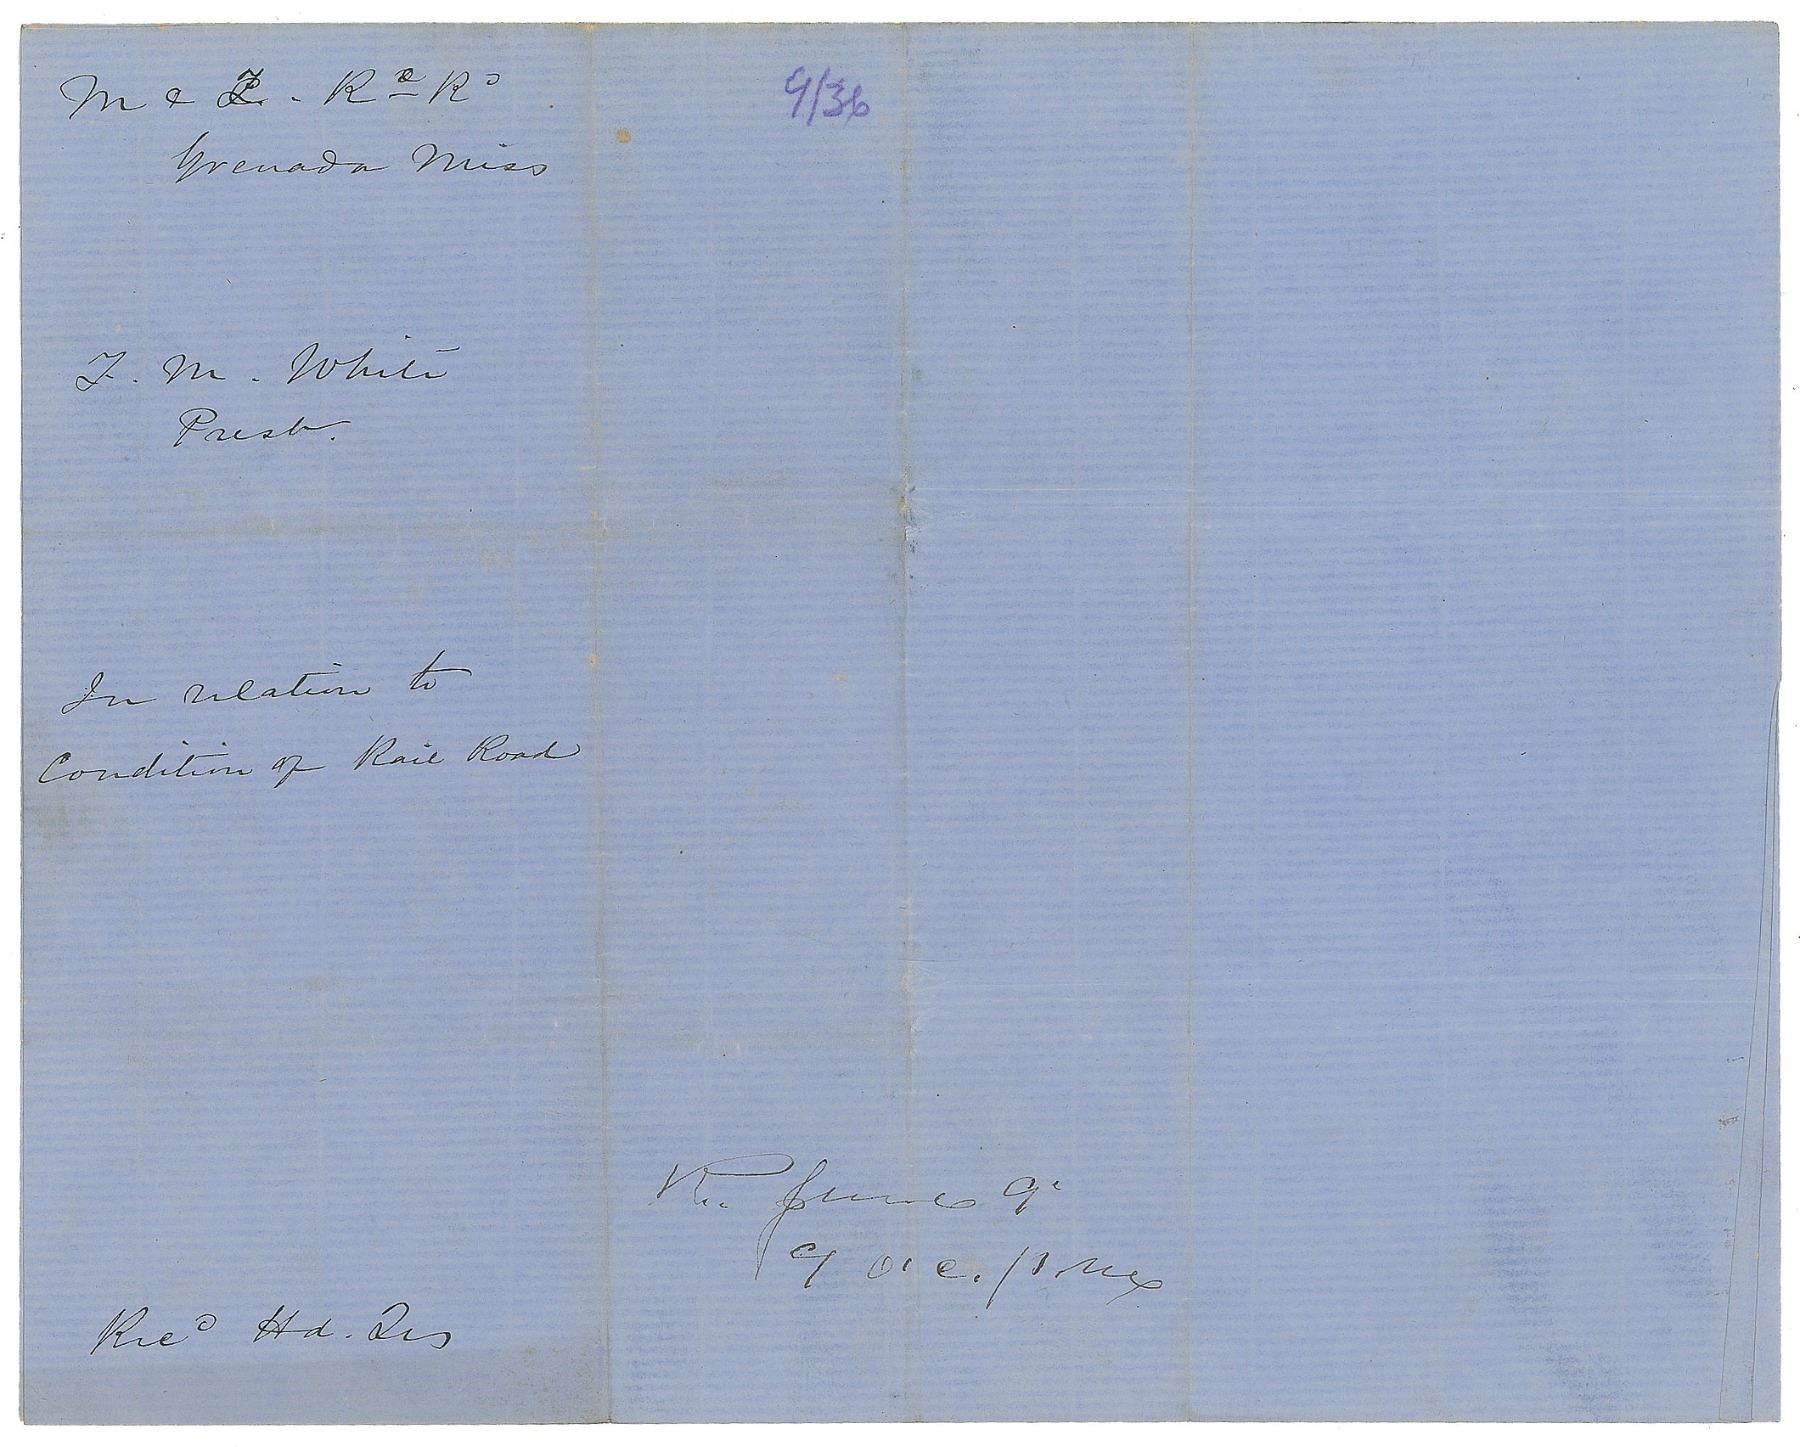 M & T. Rd Rd
Grenada Miss
9/36
F. M. White
Prest.
In relation to
Condition of Rail Road
Recd Hd. Qrs